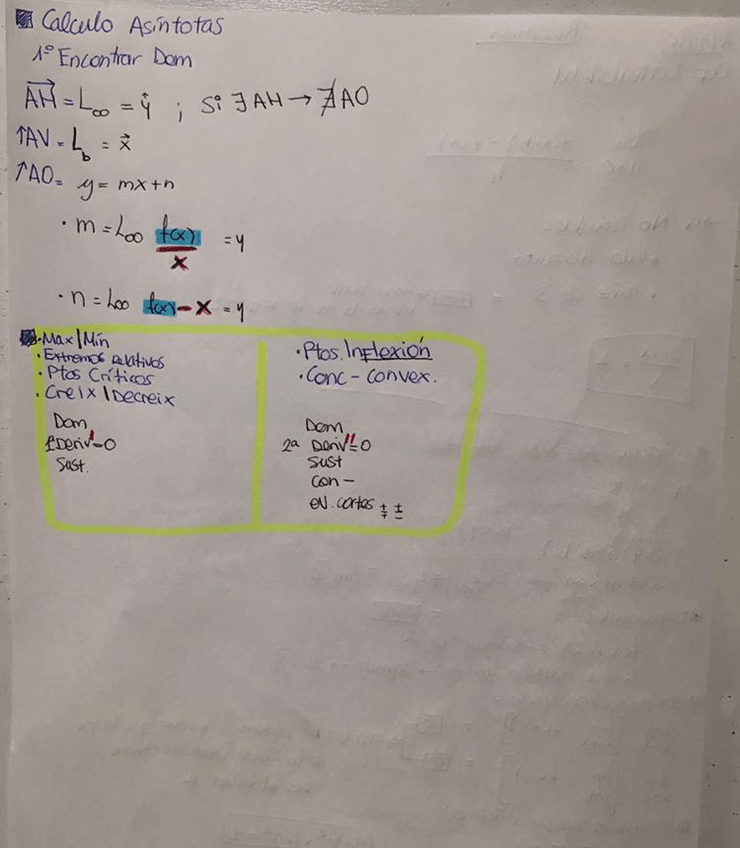 Calculo Asíntotas
1º Encontrar Dom
AH = L∞ = ŷ ; Si ∃ AH → ∄ AO
↑AV = L_b = x⃗
↑AO = y = mx+n
· m = L∞ f(x)/x = y
· n = L∞ f(x) - x = y
· Max/Mín
· Extremos Relativos
· Ptos Críticos
· Creix/Decreix
Dom
1ª Deriv' = 0
Sust.
· Ptos. Inflexión
· Conc - Convex.
Dom
2ª Deriv'' = 0
Sust
Con -
eV. cortes ∓ ±